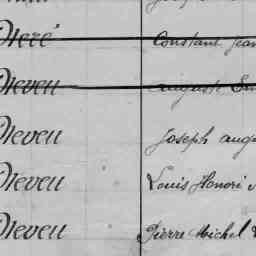 Dieré Constant Jean
Dieveu Auguste
Dieveu Joseph aug
Dieveu Louis Honoré
Dieveu Pierre Michel